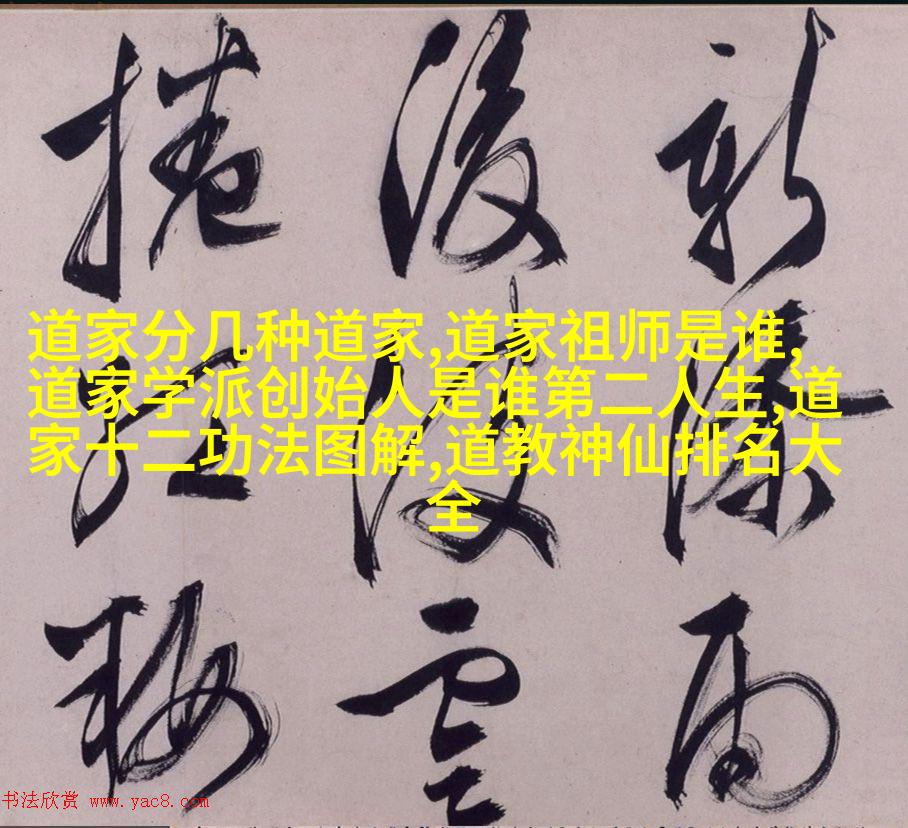 新 雨
後 雲
道家分几种道家,道家祖师是谁,
道家学派创始人是谁第二人生,道
家十二功法图解,道教神仙排名大
全
书法欣赏 www.yac8.com